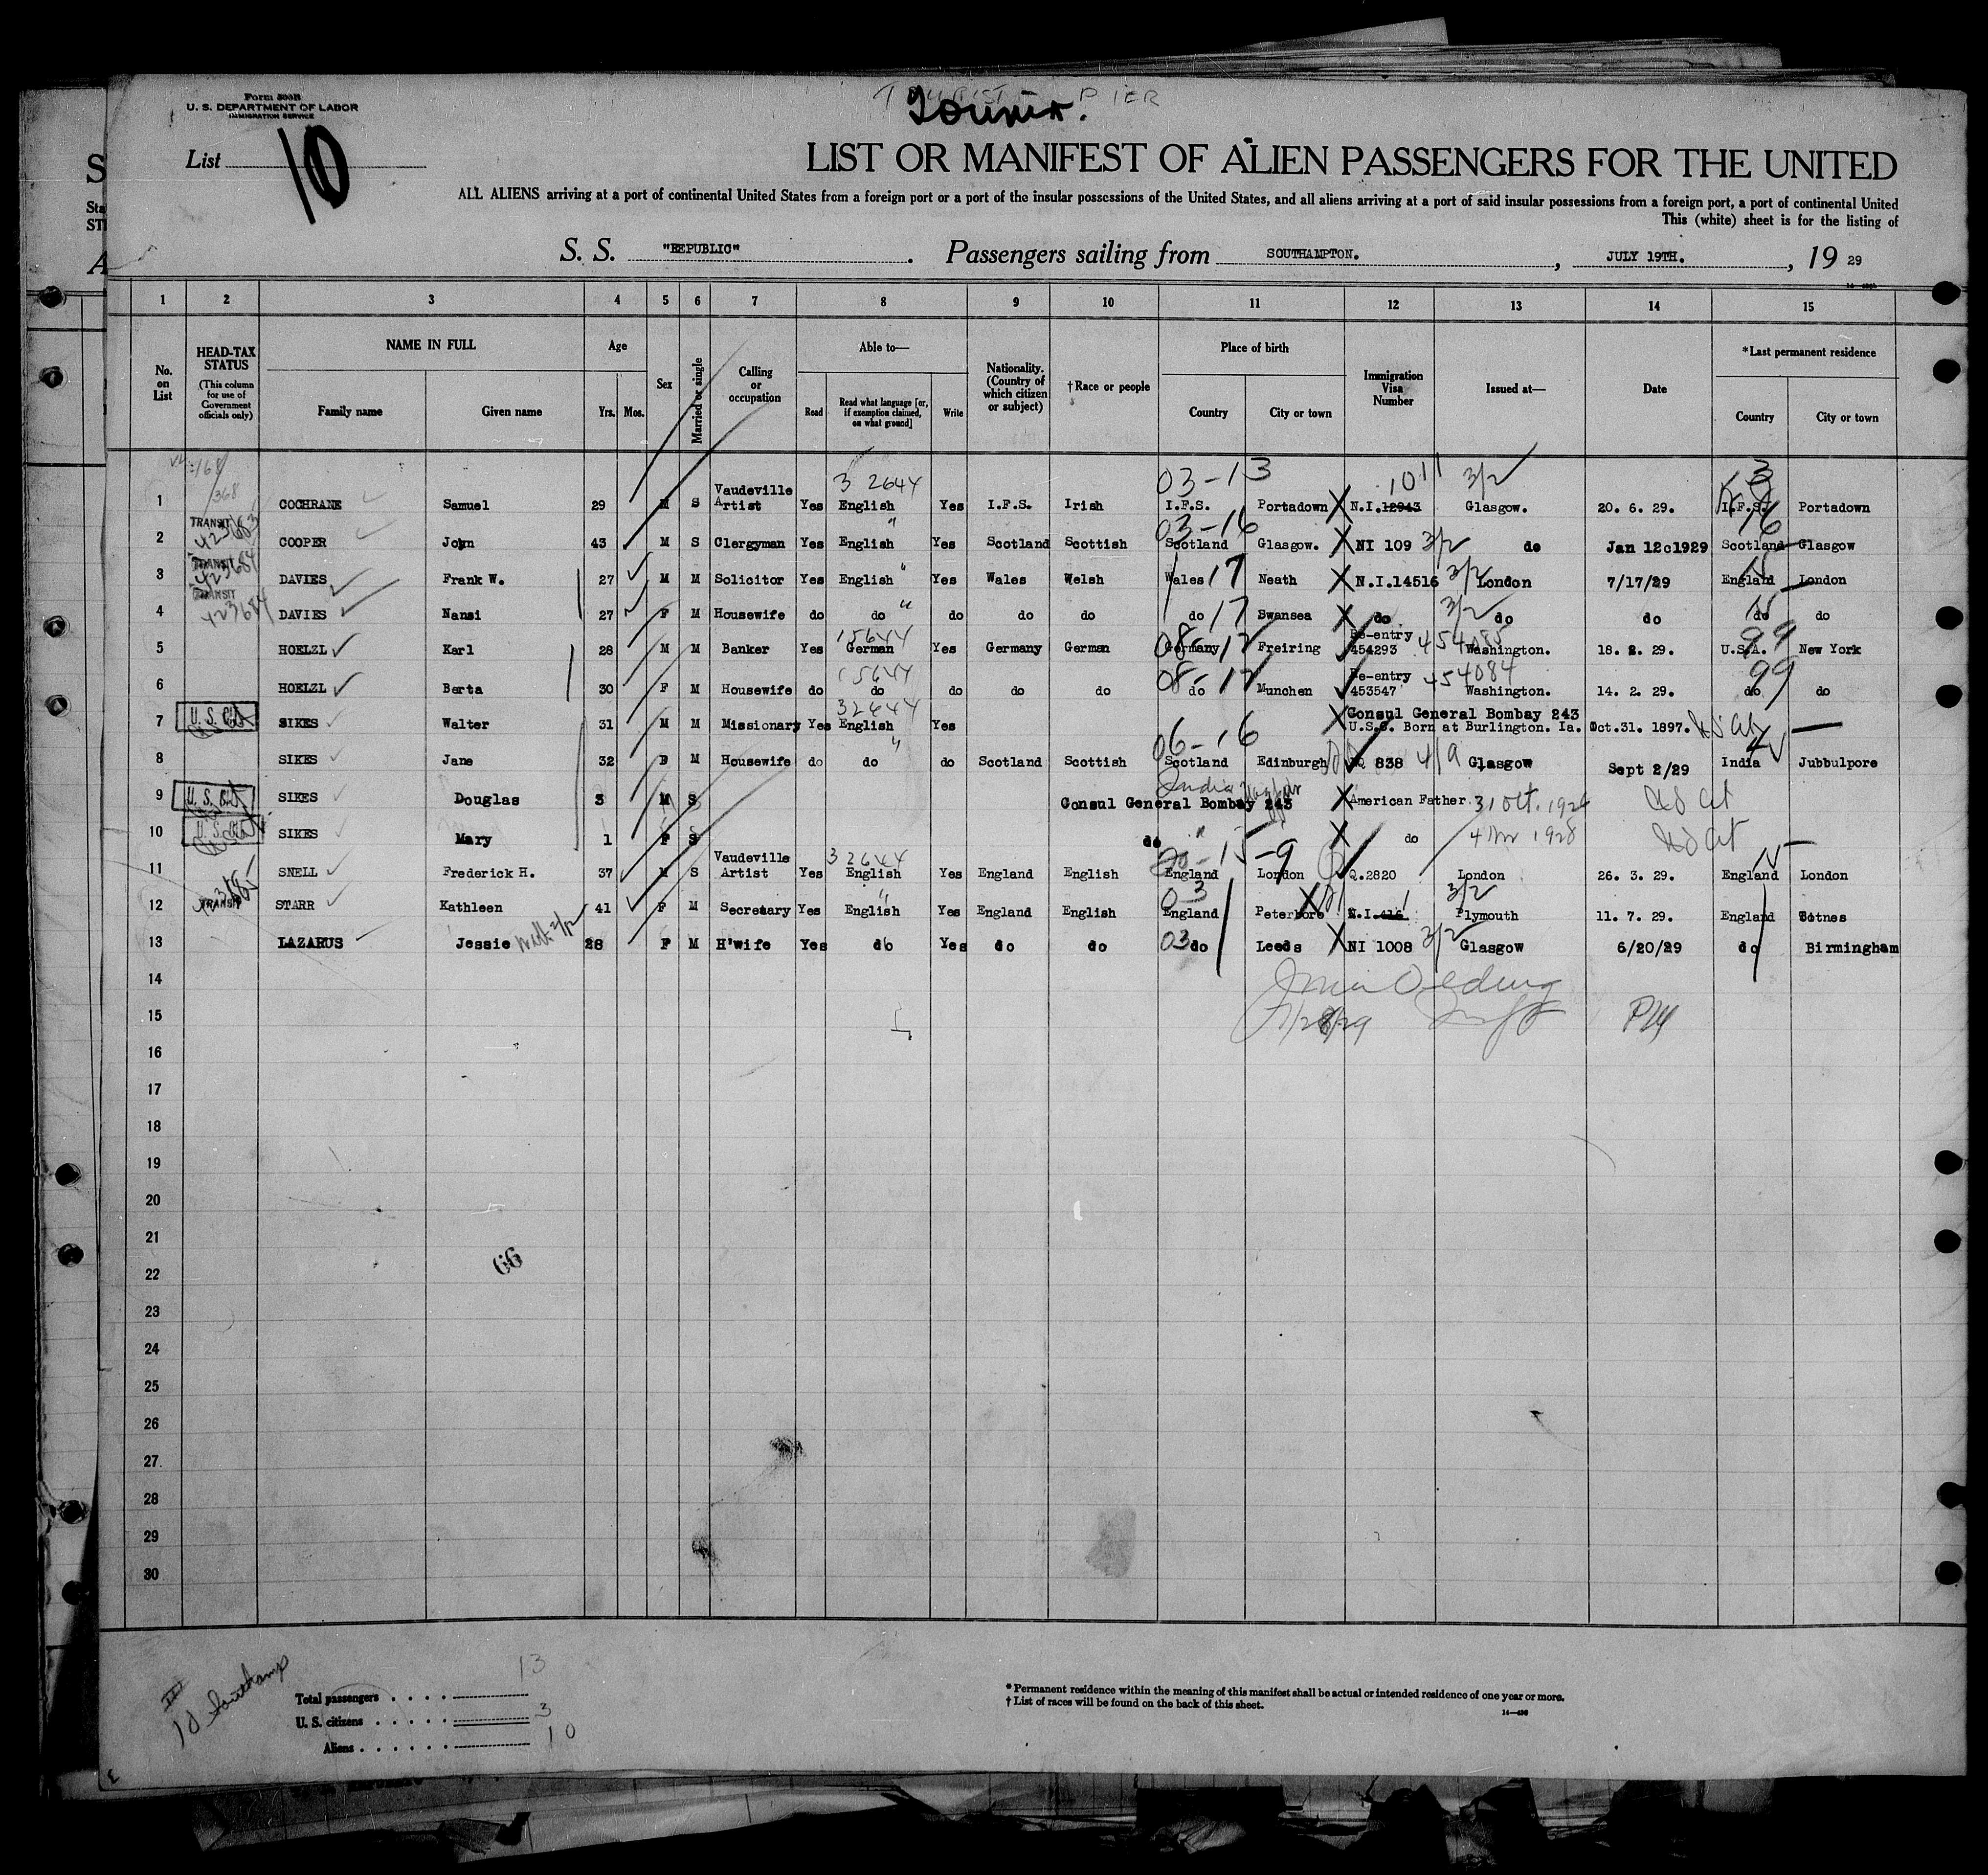 Form 500B
U. S. DEPARTMENT OF LABOR
IMMIGRATION SERVICE
TOURIST PIER
Tourist.
List 10
LIST OR MANIFEST OF ALIEN PASSENGERS FOR THE UNITED
ALL ALIENS arriving at a port of continental United States from a foreign port or a port of the insular possessions of the United States, and all aliens arriving at a port of said insular possessions from a foreign port, a port of continental United
This (white) sheet is for the listing of
S. S. "REPUBLIC". Passengers sailing from SOUTHAMPTON., JULY 19TH., 19 29
1 2 3 4 5 6 7 8 9 10 11 12 13 14 15
No. on List
HEAD-TAX STATUS (This column for use of Government officials only)
NAME IN FULL
Family name Given name
Age
Yrs. Mos.
Sex
Married or single
Calling or occupation
Able to—
Read
Read what language [or, if exemption claimed, on what ground]
Write
Nationality. (Country of which citizen or subject)
†Race or people
Place of birth
Country City or town
Immigration Visa Number
Issued at—
Date
*Last permanent residence
Country City or town
03-13 1011 3/2 3
1 COCHRANE Samuel 29 M S Vaudeville Artist Yes English Yes I.F.S. Irish I.F.S. Portadown N.I.12943 Glasgow. 20. 6. 29. I.F.S. Portadown
TRANSIT 03-16 16
2 COOPER John 43 M S Clergyman Yes English Yes Scotland Scottish Scotland Glasgow. NI 109 3/2 do Jan 12 1929 Scotland Glasgow
TRANSIT 423684
3 DAVIES Frank W. 27 M M Solicitor Yes English Yes Wales Welsh Wales 17 Neath N.I.14516 3/2 London 7/17/29 England London
TRANSIT 423684
4 DAVIES Nansi 27 F M Housewife do do do do do do 17 Swansea do 3/2 do do do do
15644 08-17 99
5 HOELZL Karl 28 M M Banker Yes German Yes Germany German Germany Freiring Re-entry 454293 454085 Washington. 18. 2. 29. U.S.A. New York
15644 08-17 99
6 HOELZL Berta 30 F M Housewife do do do do do do Munchen Re-entry 453547 454084 Washington. 14. 2. 29. do do
32644
7 U. S. Cit. SIKES Walter 31 M M Missionary Yes English Yes Consul General Bombay 243 U.S.C. Born at Burlington. Ia. Oct.31. 1897. US Cit
06-16
8 SIKES Jane 32 F M Housewife do do do Scotland Scottish Scotland Edinburgh Q 838 4/9 Glasgow Sept 2/29 India Jubbulpore
India
9 U. S. Cit. SIKES Douglas 3 M S Consul General Bombay 243 American Father. 31 Oct. 1926 US Cit
10 U. S. Cit. SIKES Mary 1 F S do " do 1928 US Cit
32644 15-9
11 SNELL Frederick H. 37 M S Vaudeville Artist Yes English Yes England English England London Q.2820 London 26. 3. 29. England London
03 3/2
12 TRANSIT STARR Kathleen 41 F M Secretary Yes English Yes England English England Peterboro N.I.416 Plymouth 11. 7. 29. England
13 LAZARUS Jessie 28 F M H'wife Yes do Yes do do 03 do Leeds NI 1008 3/2 Glasgow 6/20/29 do Birmingham
14
15 7/28/29
16
17
18
19
20
21
66
22
23
24
25
26
27
28
29
30
10 Southamp
Total passengers 13
U. S. citizens 3
Aliens 10
* Permanent residence within the meaning of this manifest shall be actual or intended residence of one year or more.
† List of races will be found on the back of this sheet.